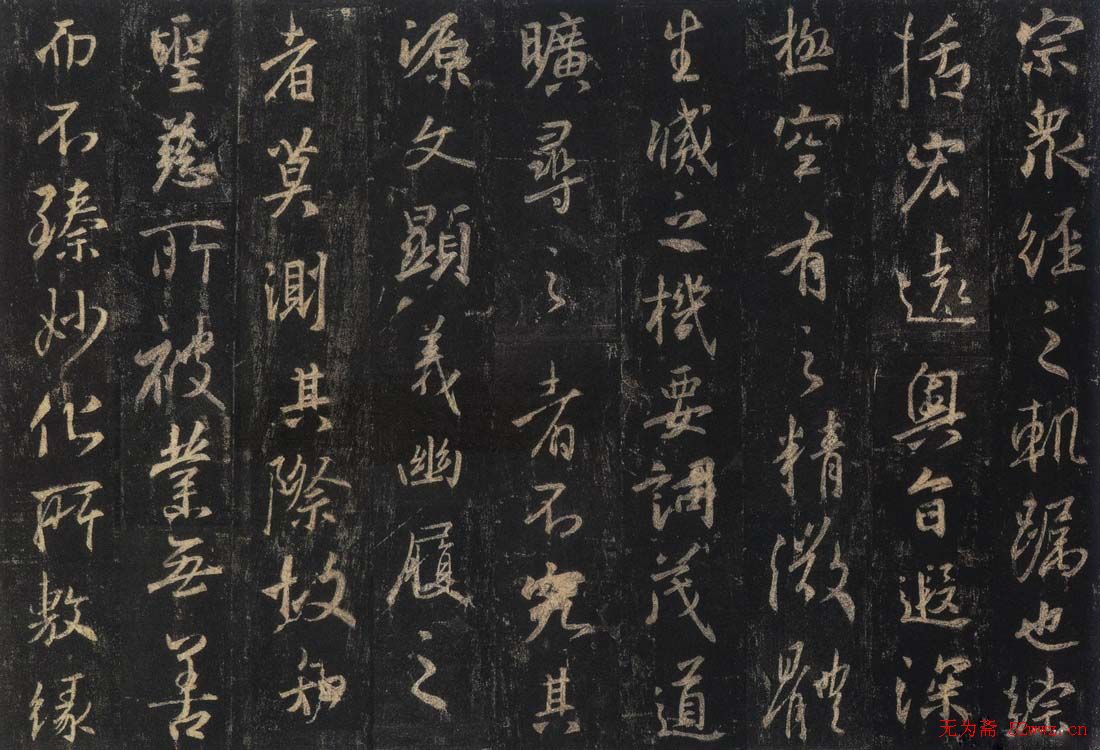 宗衆經之軌躅也綜
括宏遠奧旨遐深
極空有之精微體
生滅之機要詞茂道
曠尋之者不究其
源文顯義幽履之
者莫測其際故知
聖慈所被業無善
而不臻妙化所敷緣
无为斋